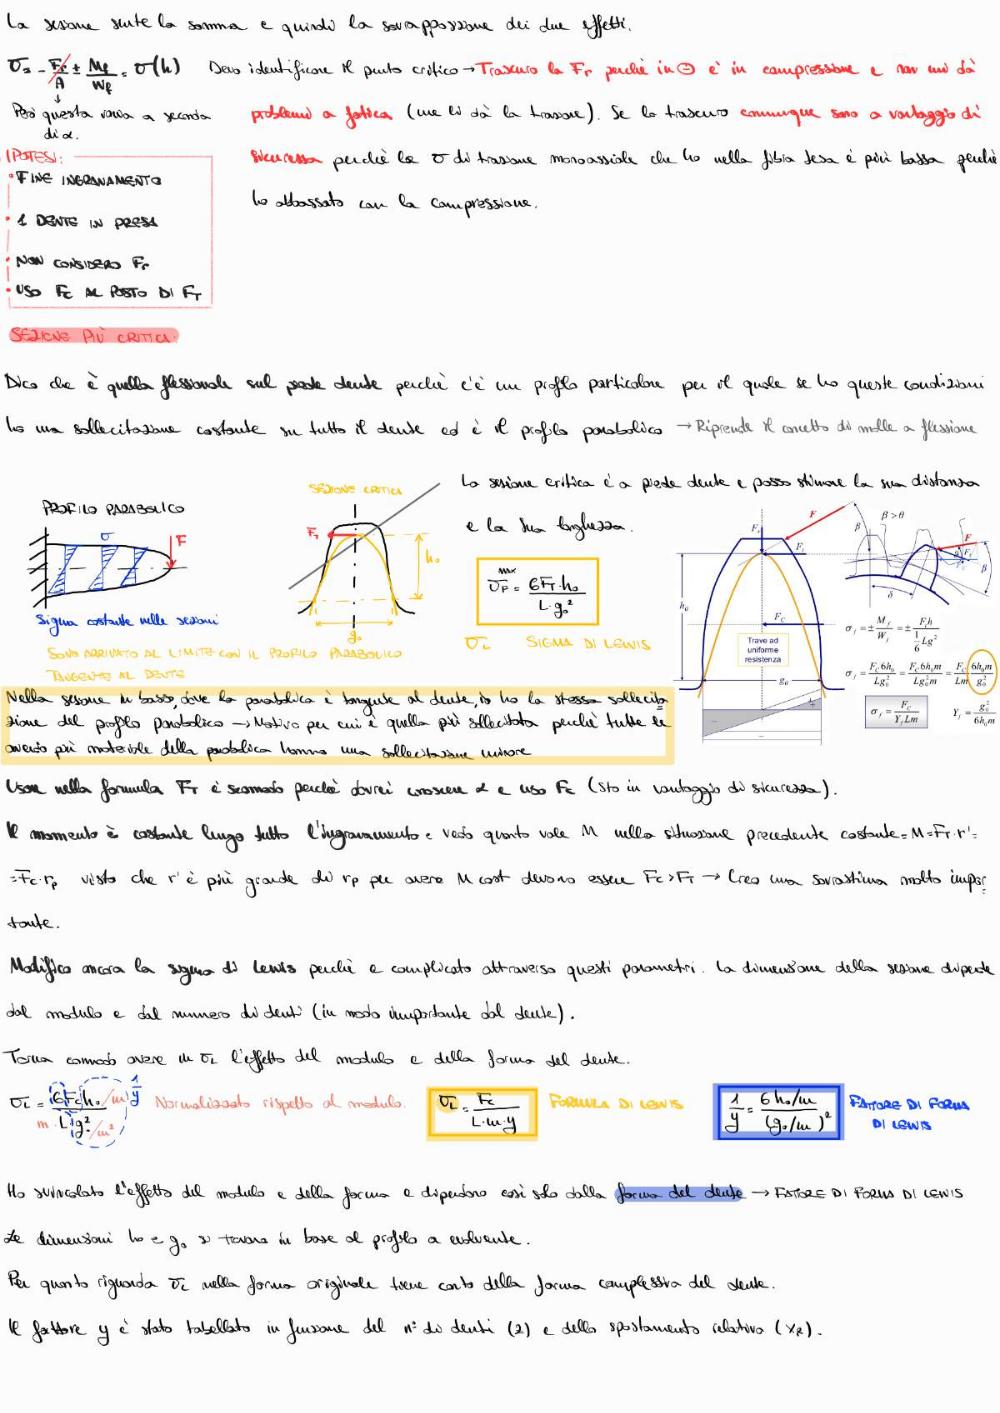 La sezione sente la somma e quindi la sovrapposizione dei due effetti.
σz = - Fr/A ± Mf/Wf = σ(h) Devo identificare il punto critico → Trascuro la Fr perché in ⊖ e è in compressione e non mi dà
Però questa varia a seconda di α.
problemi a fatica (me li dà la trazione). Se la trascuro comunque sono a vantaggio di
sicurezza perché la σ di trazione monoassiale che ho nella fibra tesa è più bassa perché
ho abbassato con la compressione.
IPOTESI:
• FINE INGRANAMENTO
• 1 DENTE IN PRESA
• NON CONSIDERO Fr
• USO Fc AL POSTO DI FT
SEZIONE PIÙ CRITICA:
Dico che è quella flessionale sul piede dente perché c'è un profilo particolare per il quale se ho queste condizioni
ho una sollecitazione costante su tutto il dente ed è il profilo parabolico → Riprende il concetto di molle a flessione
PROFILO PARABOLICO
σ
F
Sigma costante nelle sezioni
SEZIONE CRITICA
FT
h₀
g₀
SONO ARRIVATO AL LIMITE CON IL PROFILO PARABOLICO
TANGENTE AL DENTE
La sezione critica è a piede dente e posso stimare la sua distanza
e la sua larghezza.
σP max = 6FT·h₀ / L·g₀²
σL SIGMA DI LEWIS
F
Fr
Ft
Fc
h₀
g₀
Trave ad
uniforme
resistenza
β > θ
β
δ
F
σf = ± Mf/Wf = ± Fth / (1/6 Lg²)
σf = Fc 6h₀ / Lg₀² = Fc 6h₀m / Lg₀²m = Fc/Lm 6h₀m/g₀²
σf = Fc / YfLm
Yf = g₀² / 6h₀m
Nella sezione in basso, dove la parabolica è tangente al dente, io ho la stessa sollecita
zione del profilo parabolico → Motivo per cui è quella più sollecitata perché tutte le
avendo più materiale della parabolica hanno una sollecitazione minore
Usare nella formula FT è scomodo perché dovrei conoscere α e uso Fc (sto in vantaggio di sicurezza).
Il momento è costante lungo tutto l'ingranamento e vedo quanto vale M nella situazione precedente costante = M = FT·r' =
= Fc·rp visto che r' è più grande di rp per avere M cost devono essere Fc > FT → Creo una sovrastima molto impor
tante.
Modifico ancora la sigma di Lewis perché è complicato attraverso questi parametri. La dimensione della sezione dipende
dal modulo e dal numero di denti (in modo importante dal dente).
Torna comodo avere in σL l'effetto del modulo e della forma del dente.
σL = 6Fc h₀/m / m·L g₀²/m² 1/y Normalizzato rispetto al modulo.
σL = Fc / L·m·y FORMULA DI LEWIS
1/y = 6 h₀/m / (g₀/m)² FATTORE DI FORMA
DI LEWIS
Ho svincolato l'effetto del modulo e della forma e dipendono così solo dalla forma del dente → FATTORE DI FORMA DI LEWIS
Le dimensioni h₀ e g₀ si trovano in base al profilo a evolvente.
Per quanto riguarda σL nella forma originale tiene conto della forma complessiva del dente.
Il fattore y è stato tabellato in funzione del n° di denti (z) e dello spostamento relativo (XR).